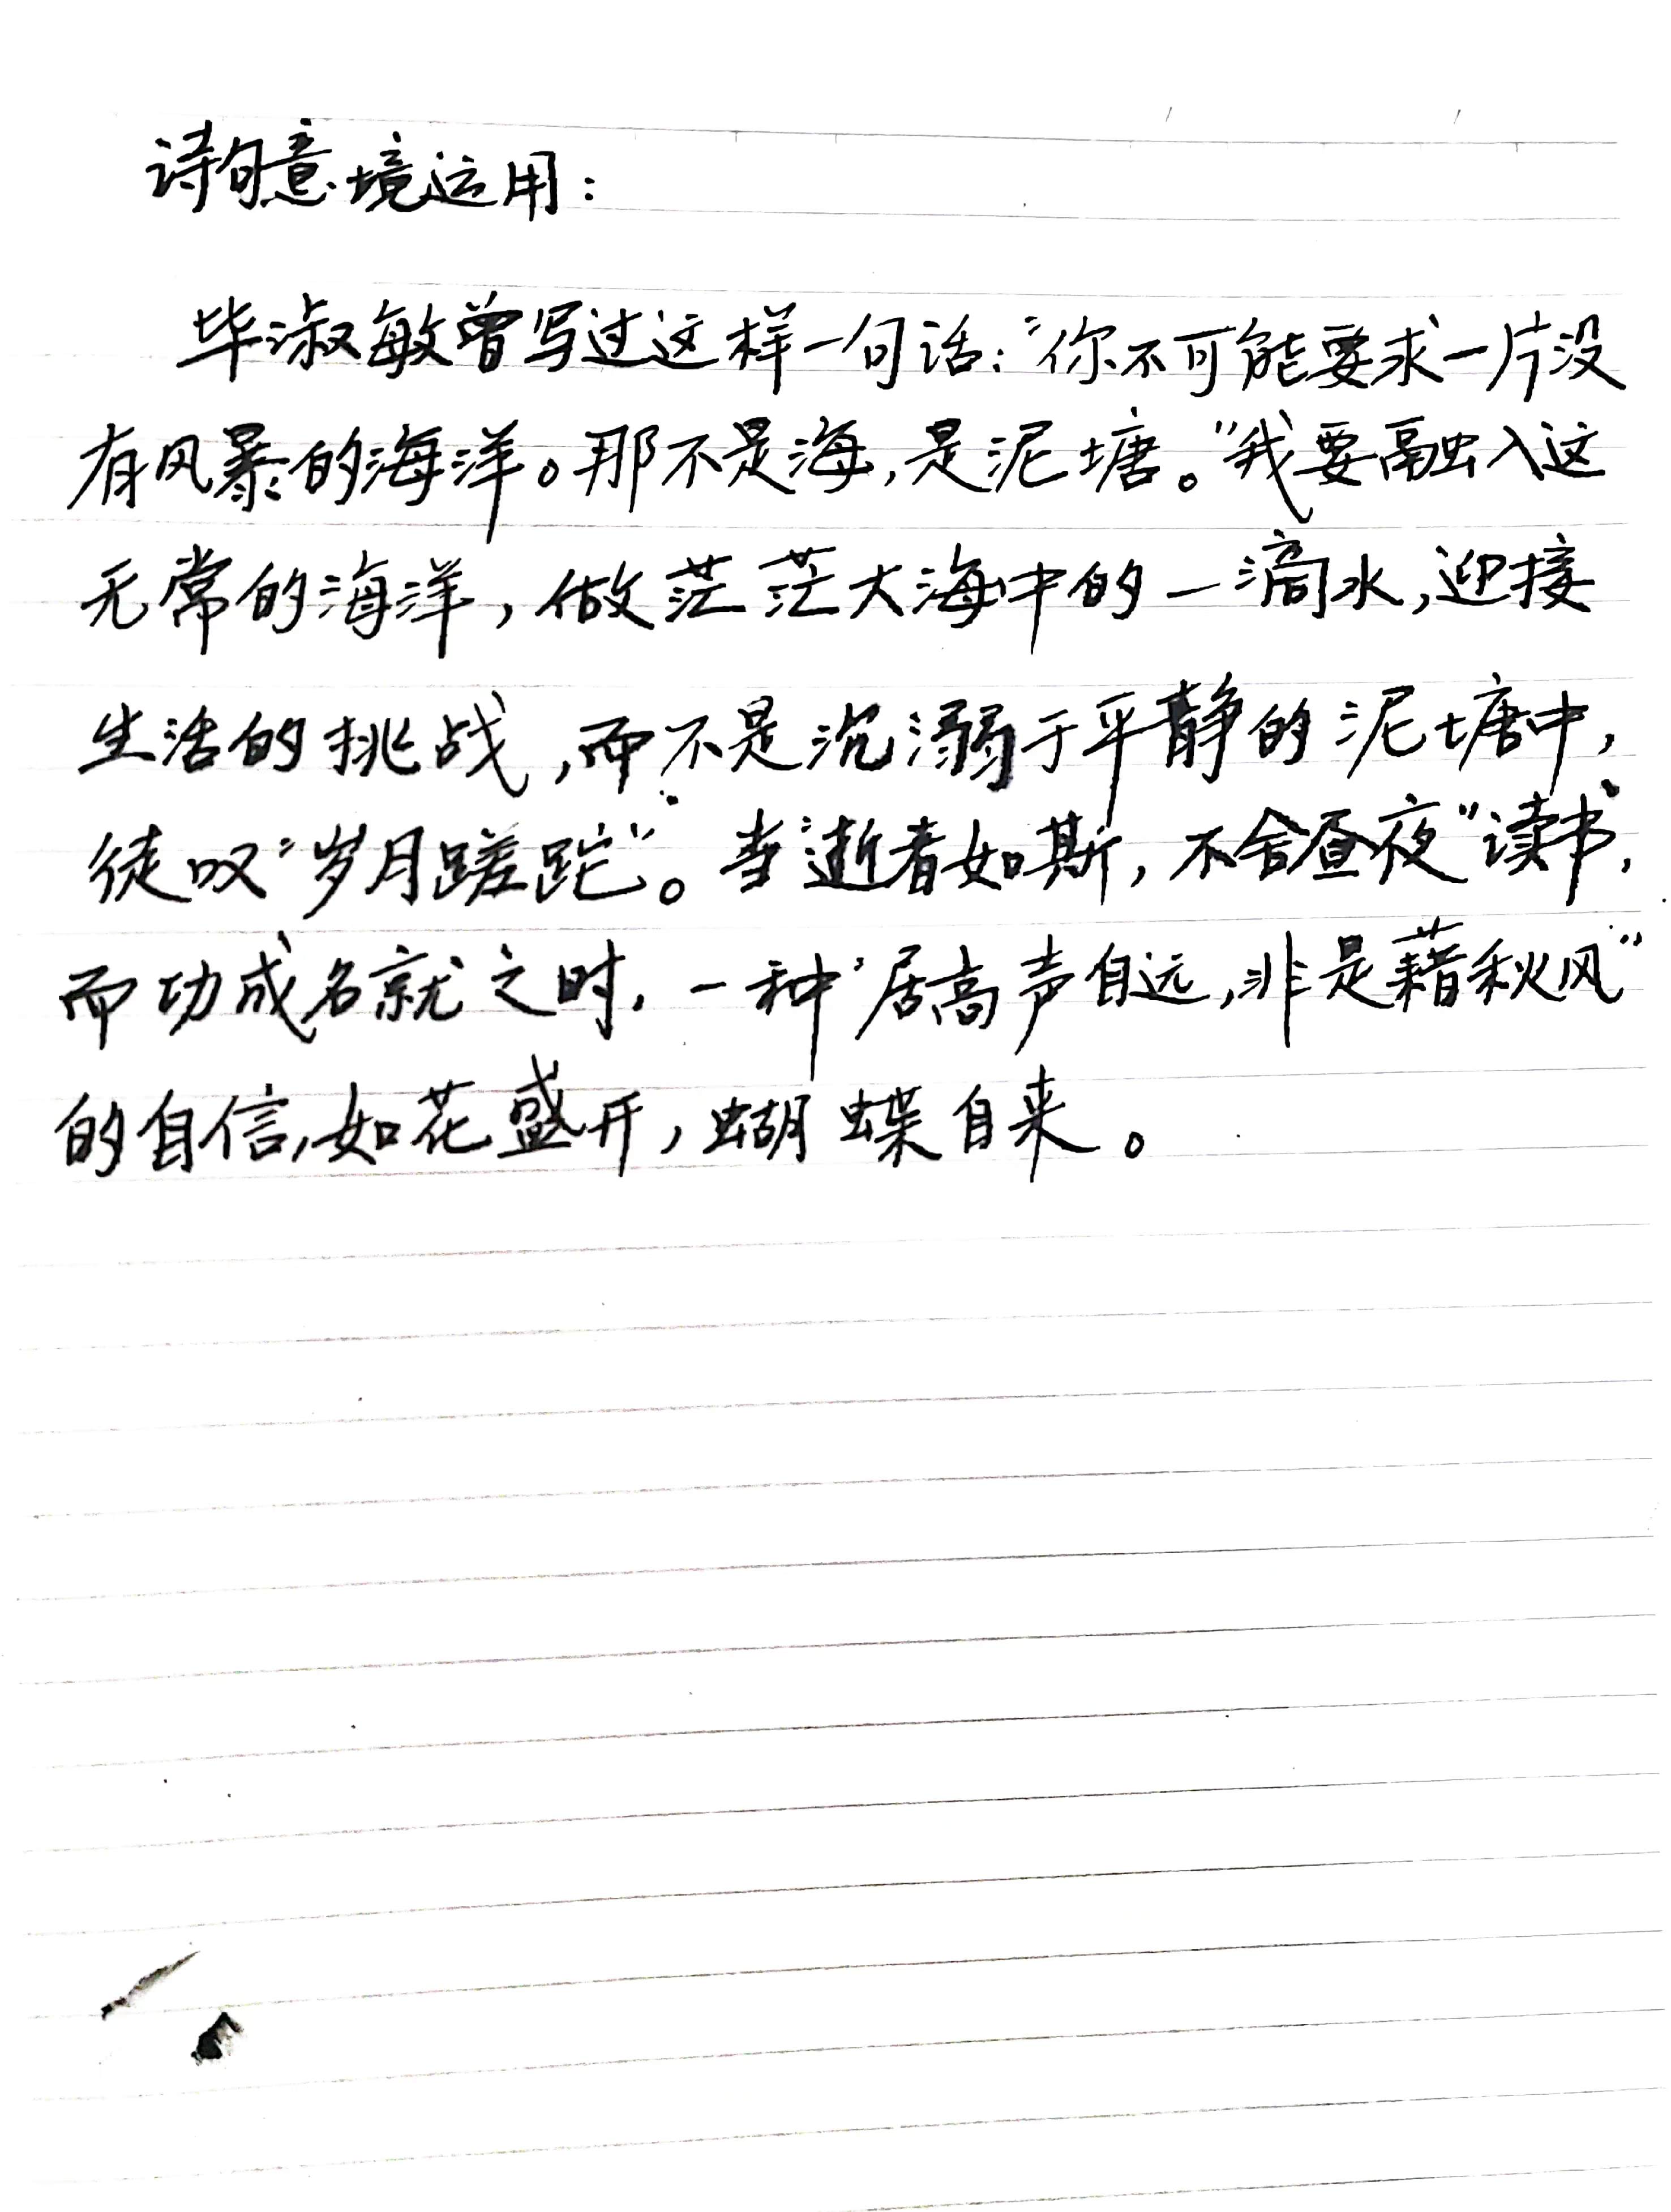 诗句意境运用：
毕淑敏曾写过这样一句话："你不可能要求一片没
有风暴的海洋。那不是海，是泥塘。"我要融入这
无常的海洋，做茫茫大海中的一滴水，迎接
生活的挑战，而不是沉溺于平静的泥塘中，
徒叹"岁月蹉跎"。当"逝者如斯，不舍昼夜"读书，
而功成名就之时，一种"居高声自远，非是藉秋风"
的自信，如花盛开，蝴蝶自来。